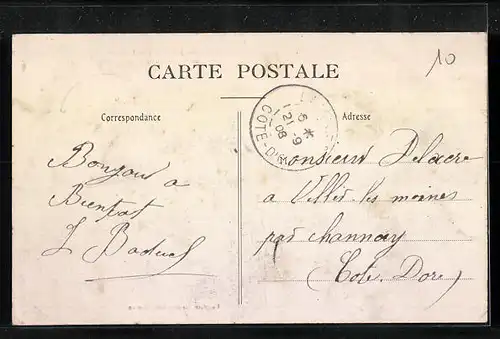 10
CARTE POSTALE
Correspondance
Adresse
5 *
21 -9
08
COTE-D'OR
Bonjour a
Bientot
Monsieur Delacre
a Villes les moines
par Channay
(Cote. Dore)